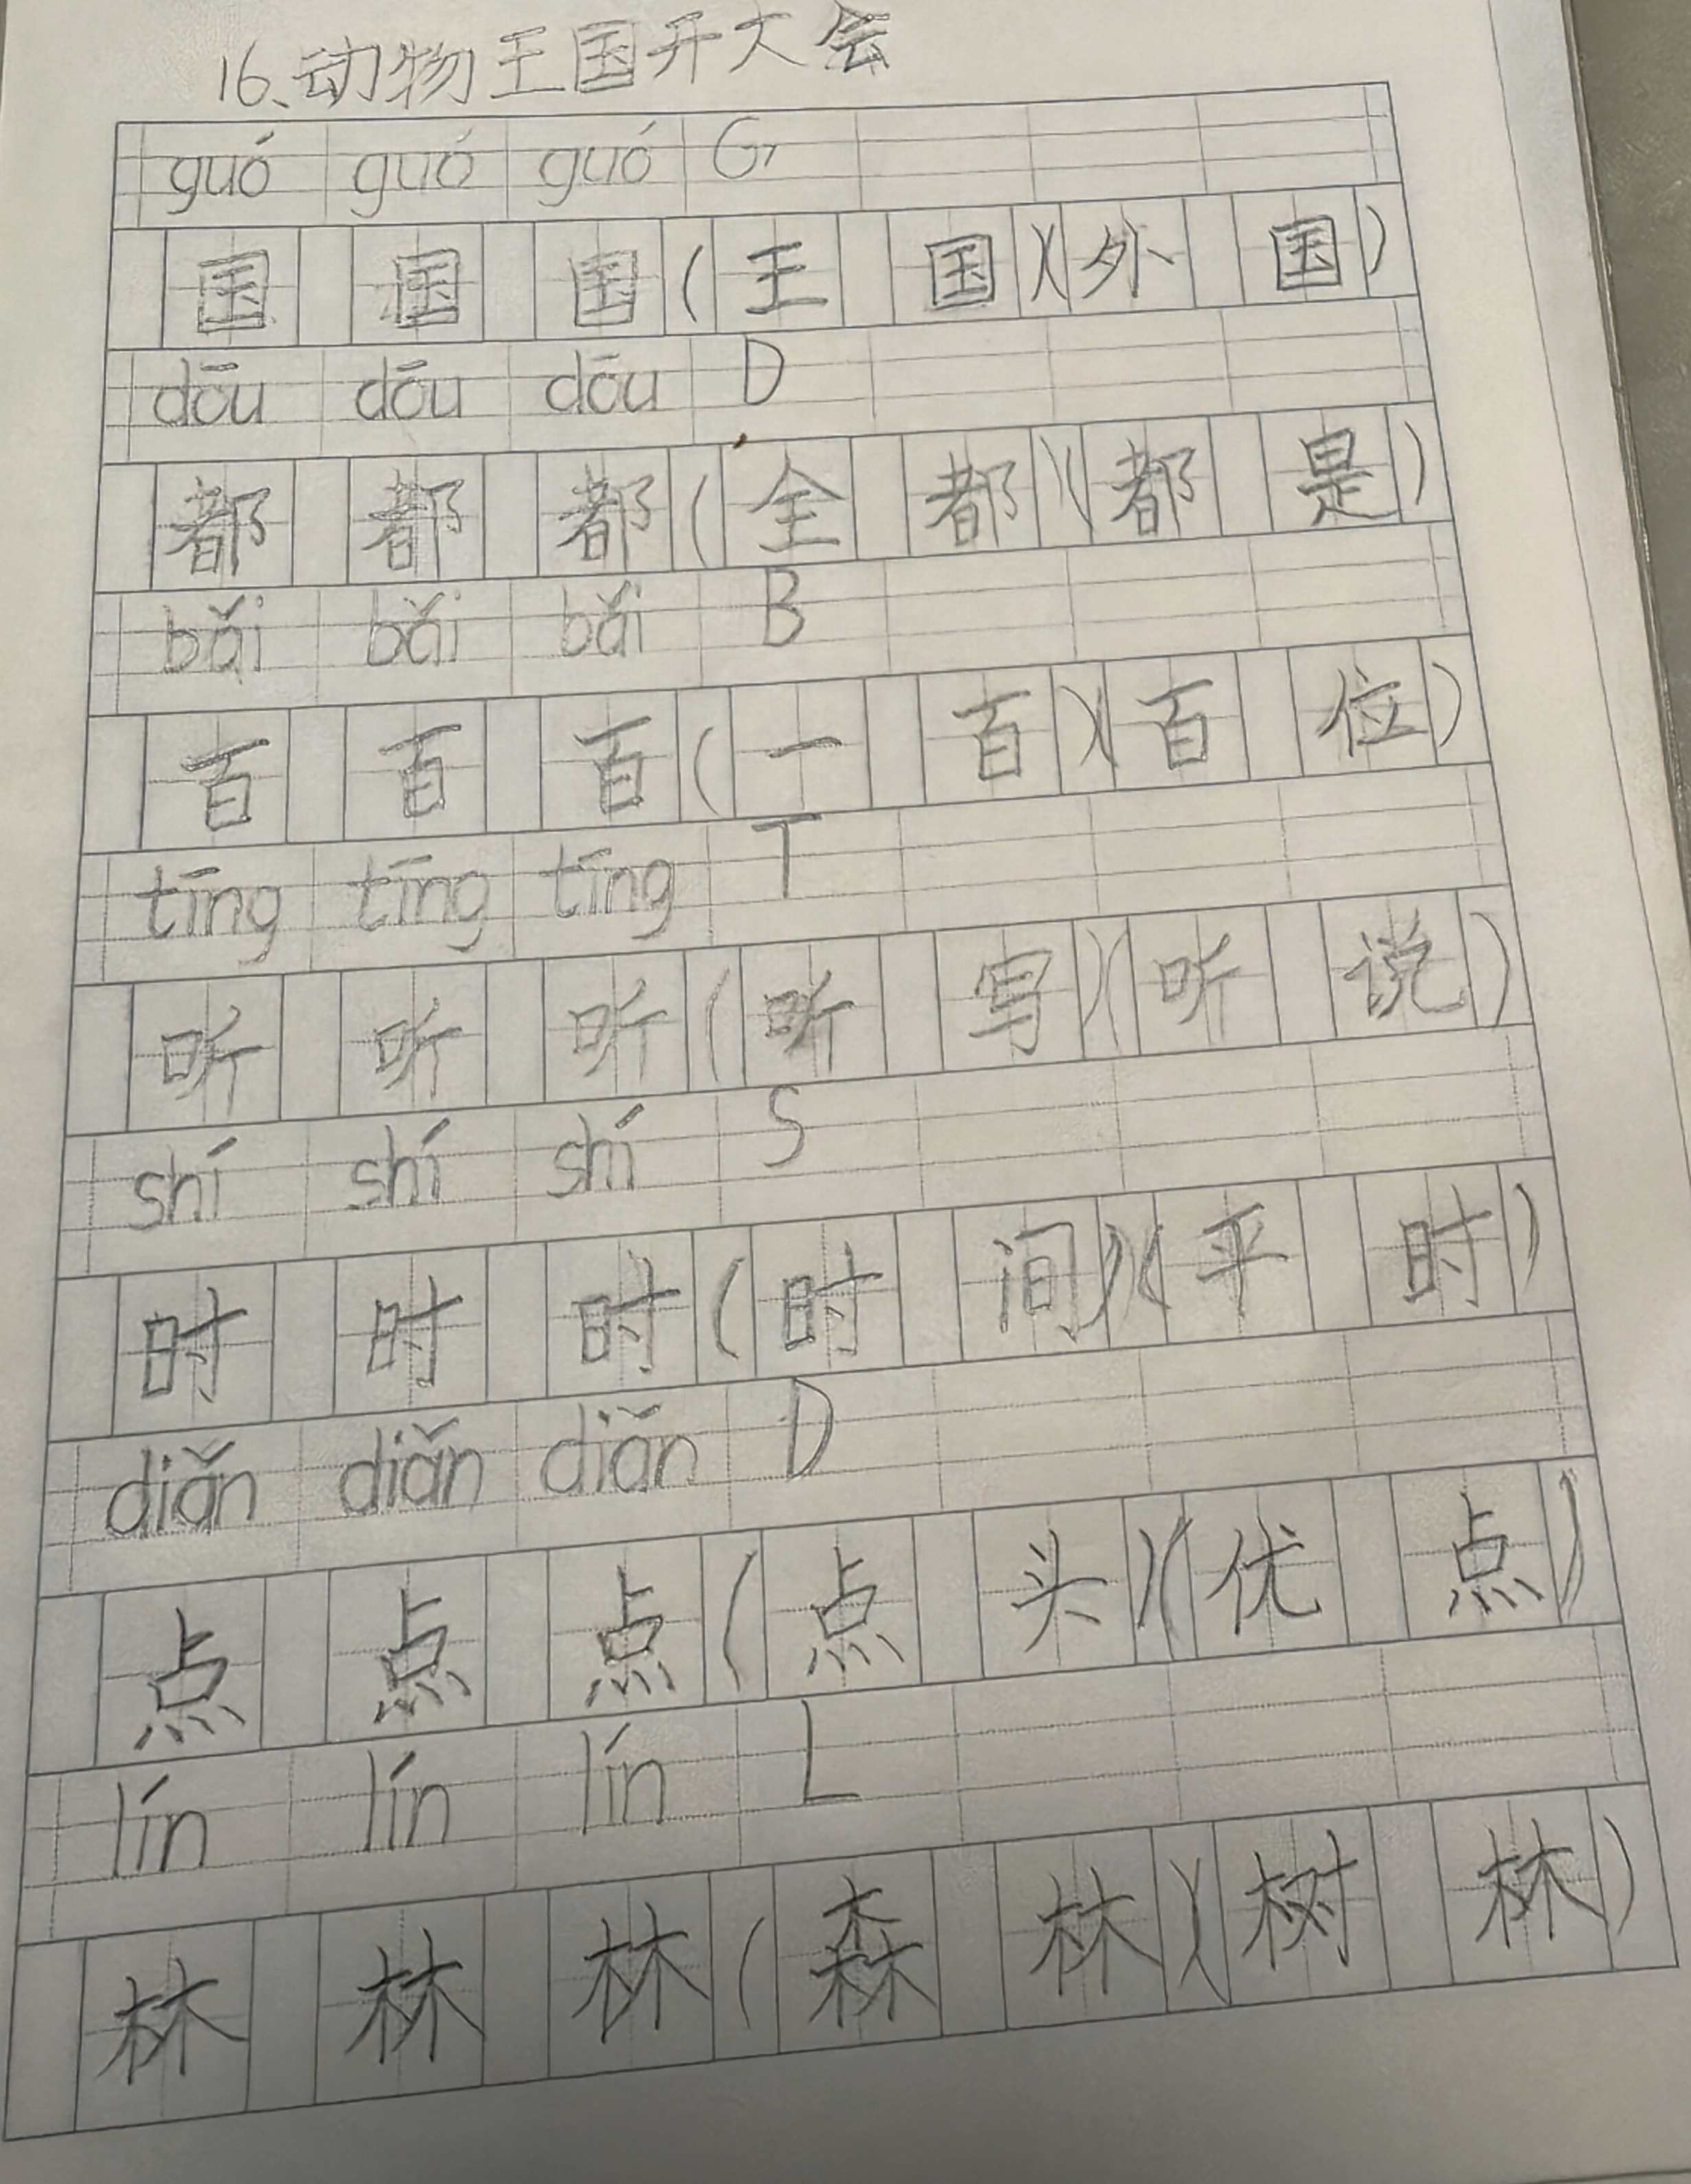 16、动物王国开大会
guó guó guó G
国 国 国 (王 国)(外 国)
dōu dōu dōu D
都 都 都 (全 都)(都 是)
bǎi bǎi bǎi B
百 百 百 (一 百)(百 位)
tīng tīng tīng T
听 听 听 (听 写)(听 说)
shí shí shí S
时 时 时 (时 间)(平 时)
diǎn diǎn diǎn D
点 点 点 (点 头)(优 点)
lín lín lín L
林 林 林 (森 林)(树 林)